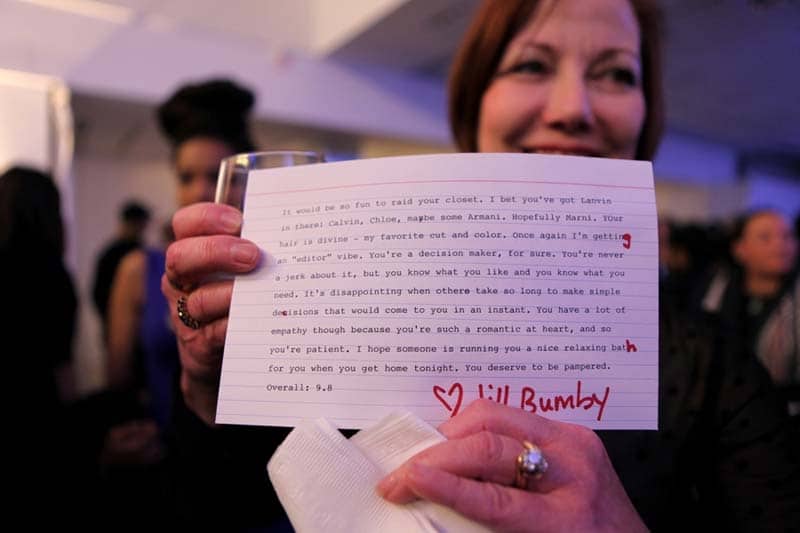 It would be so fun to raid your closet. I bet you've got Lanvin
in there! Calvin, Chloe, maybe some Armani. Hopefully Marni. YOur
hair is divine - my favorite cut and color. Once again I'm getting
an "editor" vibe. You're a decision maker, for sure. You're never
a jerk about it, but you know what you like and you know what you
need. It's disappointing when others take so long to make simple
decisions that would come to you in an instant. You have a lot of
empathy though because you're such a romantic at heart, and so
you're patient. I hope someone is running you a nice relaxing bath
for you when you get home tonight. You deserve to be pampered.
Overall: 9.8
♡ Jill Bumby